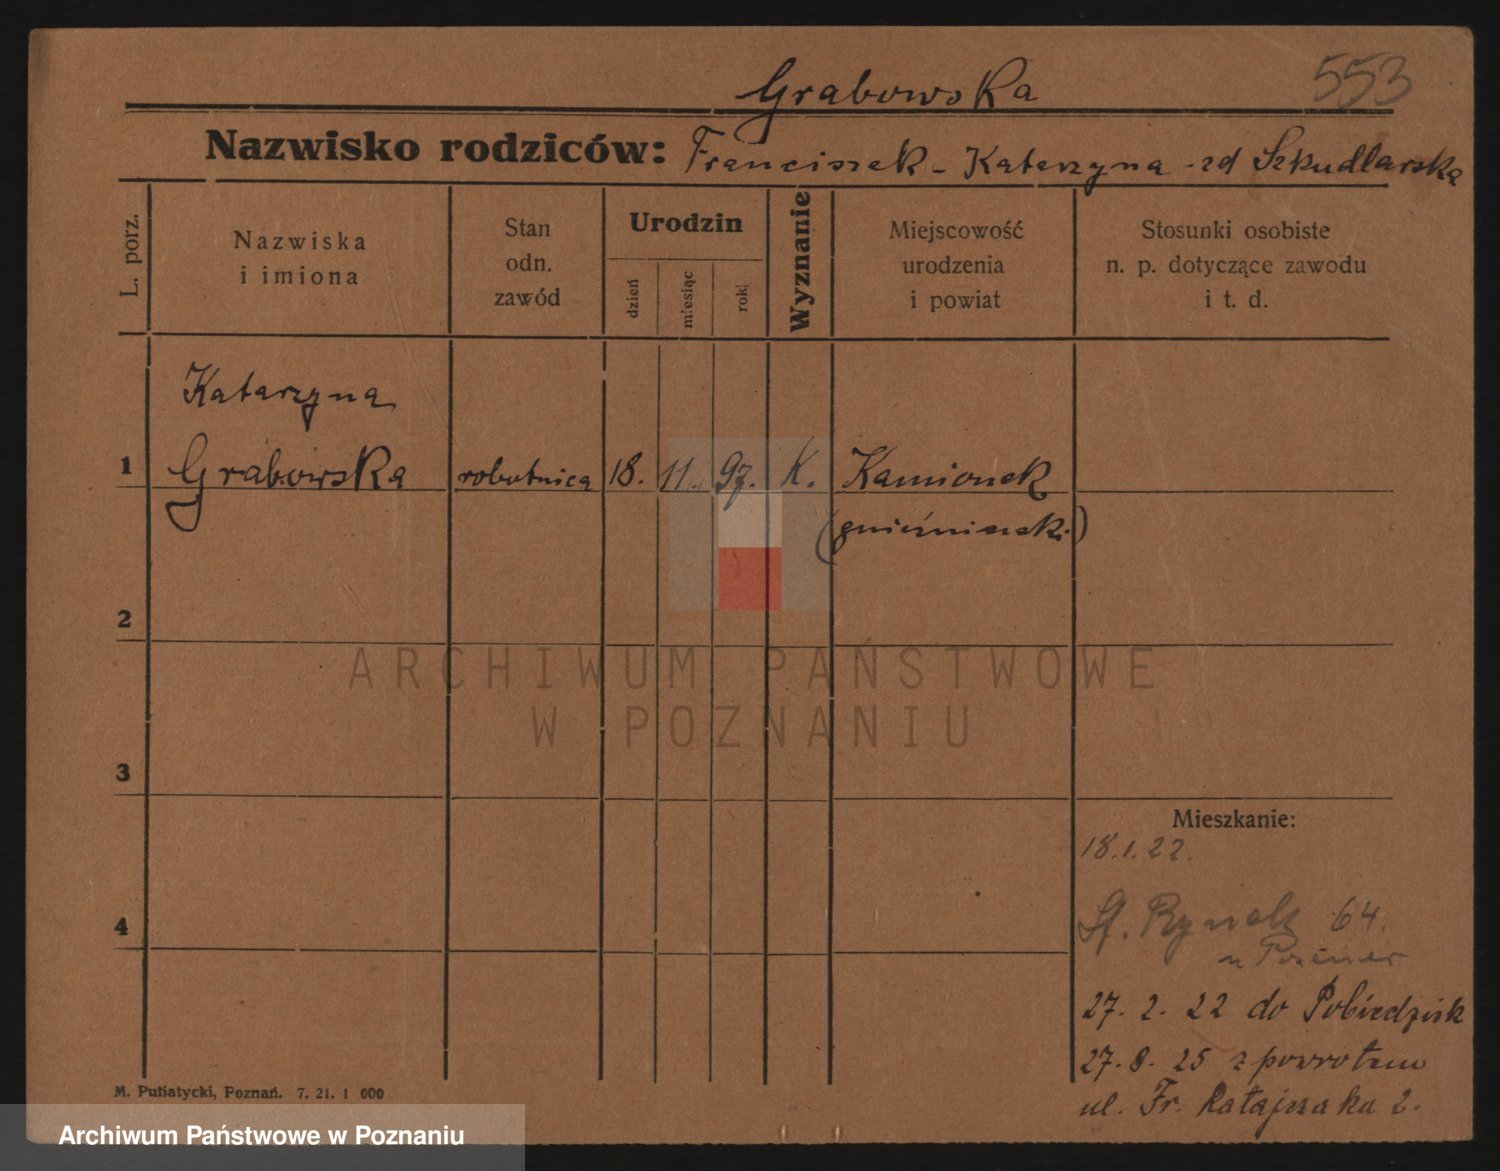 553
Grabowska
Nazwisko rodziców: Franciszek - Katarzyna - zd Szkudlarska
L. porz.
Nazwiska
i imiona
Stan
odn.
zawód
Urodzin
dzień
miesiąc
rok
Wyznanie
Miejscowość
urodzenia
i powiat
Stosunki osobiste
n. p. dotyczące zawodu
i t. d.
Katarzyna
1 Grabowska robotnica 18. 11. 97. K. Kamionek
(gnieźnieński)
2
ARCHIWUM PAŃSTWOWE
W POZNANIU
3
Mieszkanie:
18.1.22.
4
St. Rynek 64.
u
27. 2. 22 do Pobiedzisk
27. 8. 25 z powrotem
ul. Fr. Ratajczaka 2.
M. Putiatycki, Poznań. 7. 21. 1 000
Archiwum Państwowe w Poznaniu